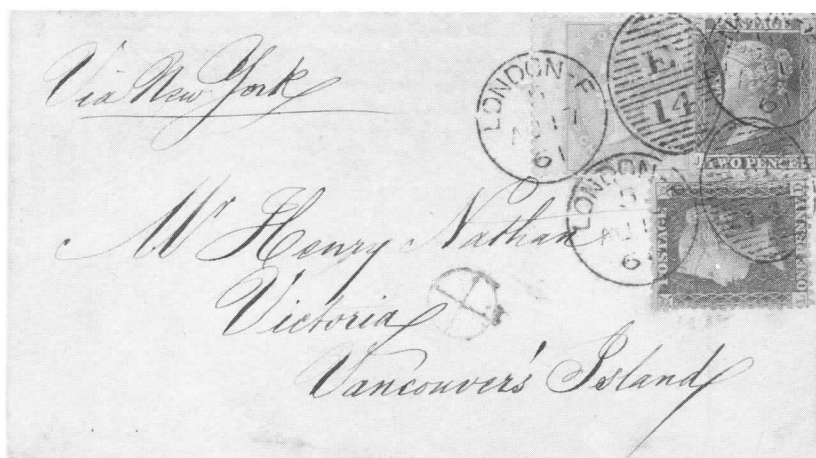 Via New York
LONDON-E
5
61
E
14
61
TWO PENCE
LONDON
5
61
POSTAGE
ONE PENNY
Mr Henry Nathan
Victoria
Vancouver's Island